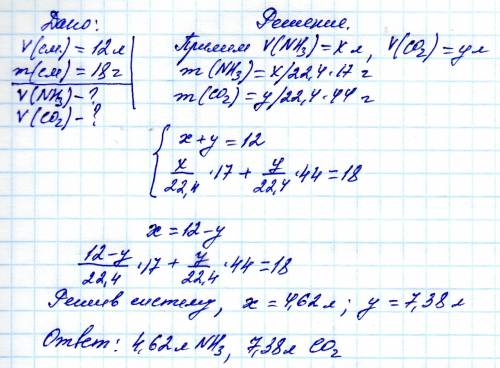 Дано:
V(см.) = 12 л
m(см) = 18 г
V(NH₃) - ?
V(CO₂) - ?
Решение.
Примем V(NH₃) = x л, V(CO₂) = y л
m(NH₃) = x/22,4·17 г
m(CO₂) = y/22,4·44 г
x + y = 12
x/22,4 ·17 + y/22,4 ·44 = 18
x = 12 - y
12-y/22,4 ·17 + y/22,4 ·44 = 18
Решив систему, x = 4,62 л; y = 7,38 л
Ответ: 4,62 л NH₃, 7,38 л CO₂